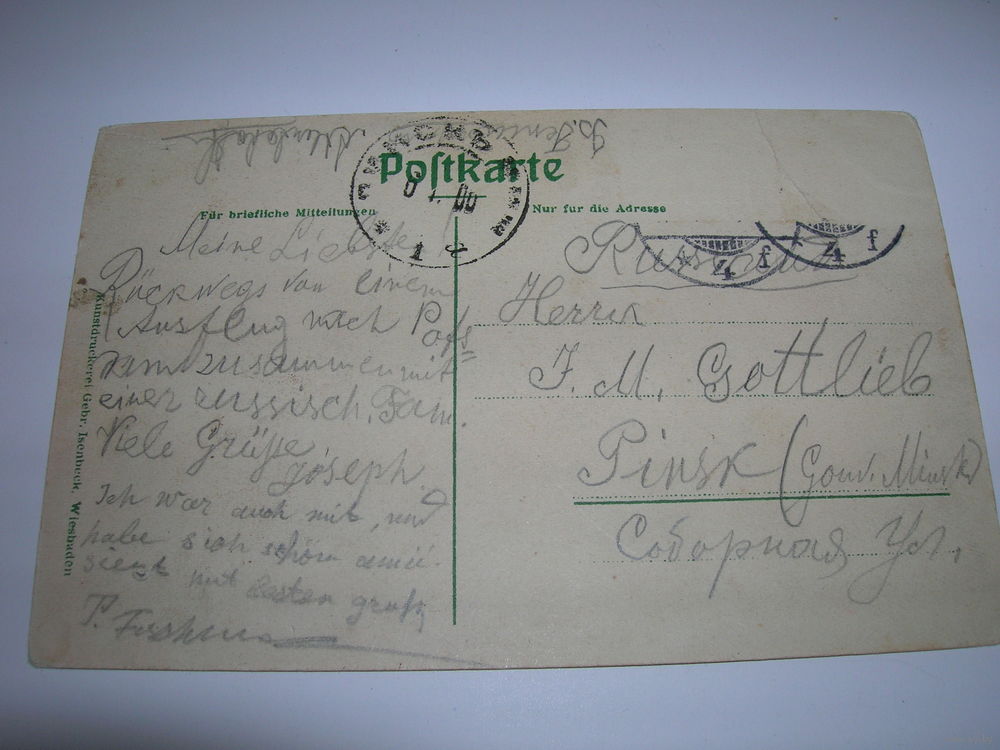 Postkarte
Für briefliche Mitteilungen
Nur für die Adresse
Meine Liebste
Rückwegs von einem
Ausflug nach Pots
dam zusammen mit
einer russisch. Fam.
Viele Grüße
Joseph.
Ich war auch mit, und
habe sich schön amü-
siert mit besten gruß,
Russland
Herrn
J. M. Gottlieb
Pinsk (Gouv. Minsk)
Соборная Ул.
4 f
4 f
Kunstdruckerei Gebr. Isenbeck, Wiesbaden